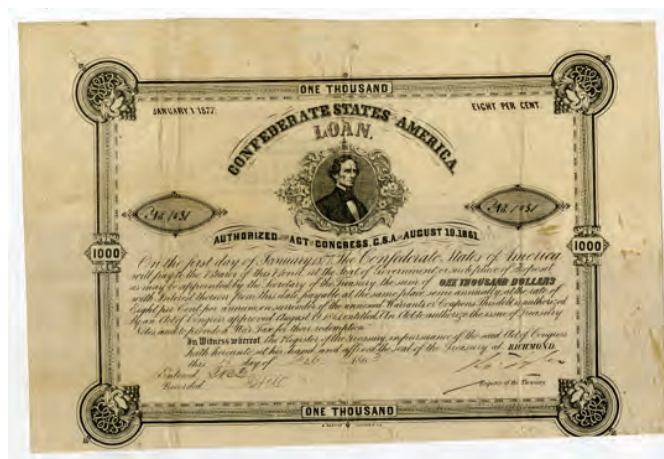 ONE THOUSAND
JANUARY 1 1877.
EIGHT PER CENT.
CONFEDERATE STATES AMERICA
LOAN.
No. 1931
No. 1931
AUTHORIZED ACT CONGRESS, C.S.A. AUGUST 19, 1861.
1000
1000
On the first day of January 1877 The Confederate States of America
will pay to the Bearer of this Bond, at the Seat of Government or such place of deposit
as may be appointed by the Secretary of the Treasury the sum of ONE THOUSAND DOLLARS
with Interest thereon from this date, payable at the same place semi annually, at the rate of
Eight per Cent per annum on surrender of the annexed Warrants or Coupons. This debt is authorized
by an Act of Congress approved August 19 1861 entitled An Act to authorize the issue of Treasury
Notes and to provide a War Tax for their redemption
In Witness whereof, the Register of the Treasury in pursuance of the said Act of Congress
hath hereunto set his hand and affixed the Seal of the Treasury at RICHMOND,
this day of 186
Entered
Recorded
Register of the Treasury
ONE THOUSAND